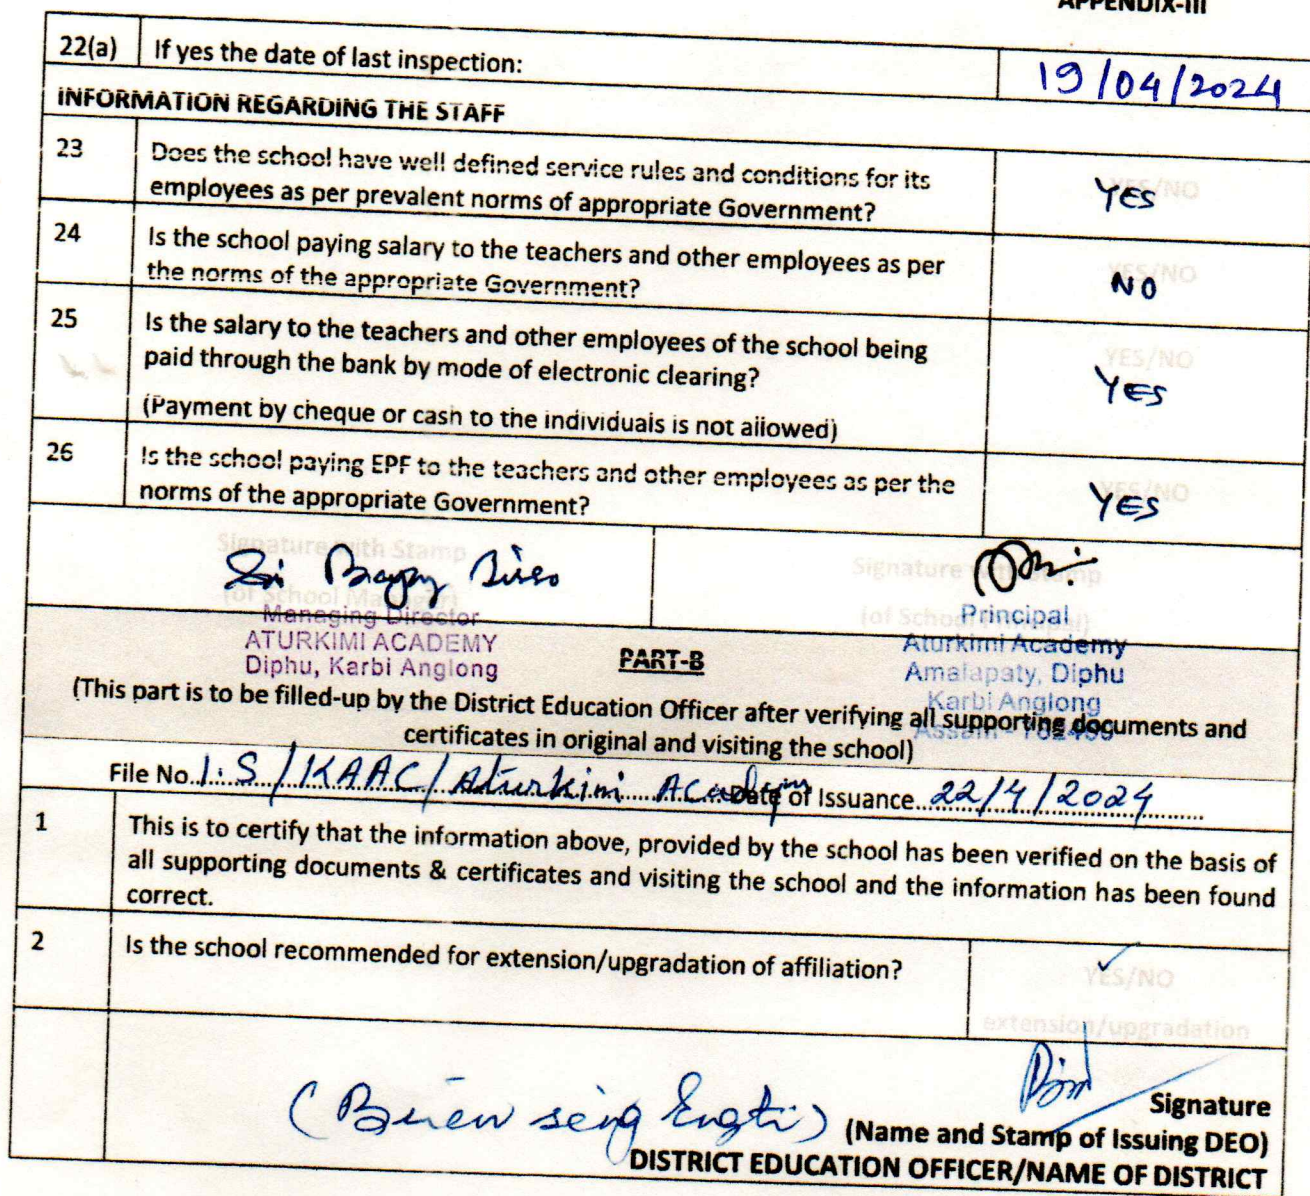 APPENDIX-III
22(a) If yes the date of last inspection: 19/04/2024
INFORMATION REGARDING THE STAFF
23 Does the school have well defined service rules and conditions for its
employees as per prevalent norms of appropriate Government? YES/NO YES
24 Is the school paying salary to the teachers and other employees as per
the norms of the appropriate Government? YES/NO NO
25 Is the salary to the teachers and other employees of the school being
paid through the bank by mode of electronic clearing? YES/NO YES
(Payment by cheque or cash to the individuals is not allowed)
26 Is the school paying EPF to the teachers and other employees as per the
norms of the appropriate Government? YES/NO YES
Signature with Stamp
(of School Manager)
Managing Director
ATURKIMI ACADEMY
Diphu, Karbi Anglong
Signature with Stamp
(of School Principal)
Principal
Aturkimi Academy
Amalapaty, Diphu
Karbi Anglong
Assam - 782460
PART-B
(This part is to be filled-up by the District Education Officer after verifying all supporting documents and
certificates in original and visiting the school)
File No. I.S/KAAC/Aturkimi Academy Date of Issuance 22/4/2024
1 This is to certify that the information above, provided by the school has been verified on the basis of
all supporting documents & certificates and visiting the school and the information has been found
correct.
2 Is the school recommended for extension/upgradation of affiliation? ✓ YES/NO
extension/upgradation
Signature
(Name and Stamp of Issuing DEO)
DISTRICT EDUCATION OFFICER/NAME OF DISTRICT